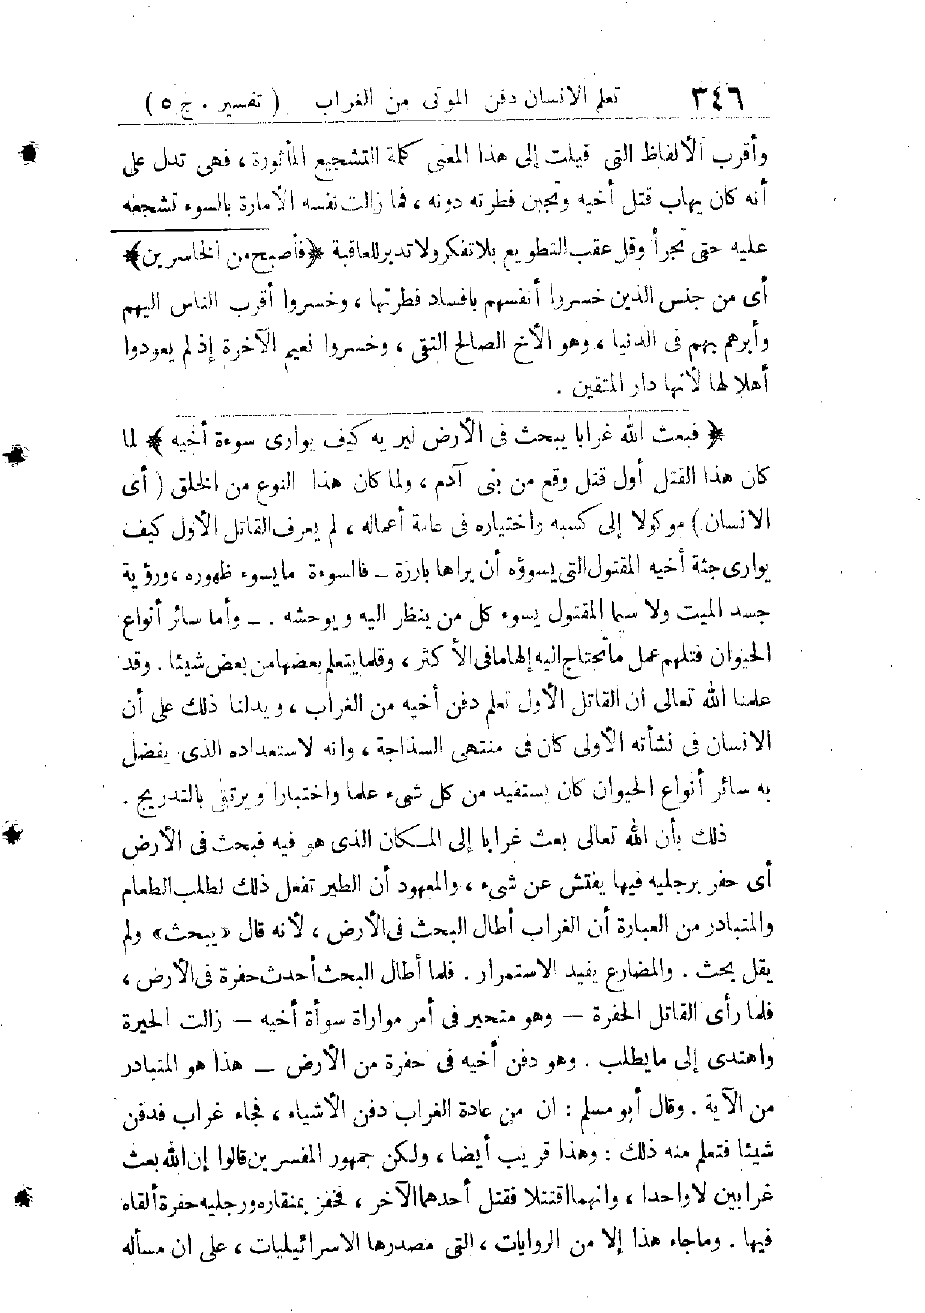 ٣٤٦ تعلم الانسان دفن الموتى من الغراب ( تفسير . ج ٥ )
وأقرب الألفاظ التى قيلت إلى هذا المعنى كلمة التشجيع المأثورة ، فهى تدل على
أنه كان يهاب قتل أخيه وتجبن فطرته دونه ، فما زالت نفسه الأمارة بالسوء تشجعه
عليه حتى تجرأ وقتل عقب التطويع بلا تفكر ولا تدبر للعاقبة ﴿ فأصبح من الخاسرين ﴾
أى من جنس الذين خسروا أنفسهم بافساد فطرتها ، وخسروا أقرب الناس اليهم
وأبرهم بهم فى الدنيا ، وهو الأخ الصالح التقى ، وخسروا نعيم الآخرة إذ لم يعودوا
أهلا لها لأنها دار المتقين .
﴿ فبعث الله غرابا يبحث فى الأرض ليريه كيف يوارى سوءة أخيه ﴾ لما
كان هذا القتل أول قتل وقع من بنى آدم ، ولما كان هذا النوع من الخلق ( أى
الانسان ) موكولا إلى كسبه واختياره فى عامة أعماله ، لم يعرف القاتل الأول كيف
يوارى جثة أخيه المقتول التى يسوؤه أن يراها بارزة ــ فالسوءة ما يسوء ظهوره ، ورؤية
جسد الميت ولا سيما المقتول يسوء كل من ينظر اليه ويوحشه . ــ وأما سائر أنواع
الحيوان فتلهم عمل ما تحتاج اليه إلهاما فى الأكثر ، وقلما يتعلم بعضها من بعض شيئا . وقد
علمنا الله تعالى ان القاتل الأول تعلم دفن أخيه من الغراب ، ويدلنا ذلك على أن
الانسان فى نشأته الأولى كان فى منتهى السذاجة ، وانه لاستعداده الذى يفضل
به سائر أنواع الحيوان كان يستفيد من كل شىء علما واختبارا ويرتقى بالتدريج .
ذلك بأن الله تعالى بعث غرابا إلى المكان الذى هو فيه فبحث فى الأرض
أى حفر برجليه فيها يفتش عن شىء ، والمعهود أن الطير تفعل ذلك لطلب الطعام
والمتبادر من العبارة أن الغراب أطال البحث فى الأرض ، لأنه قال «يبحث» ولم
يقل بحث . والمضارع يفيد الاستمرار . فلما أطال البحث أحدث حفرة فى الأرض ،
فلما رأى القاتل الحفرة ــ وهو متحير فى أمر مواراة سوأة أخيه ــ زالت الحيرة
واهتدى إلى ما يطلب . وهو دفن أخيه فى حفرة من الأرض ــ هذا هو المتبادر
من الآية . وقال أبو مسلم : ان من عادة الغراب دفن الأشياء ، فجاء غراب فدفن
شيئا فتعلم منه ذلك : وهذا قريب أيضا ، ولكن جمهور المفسرين قالوا إن الله بعث
غرابين لا واحدا ، وانهما اقتتلا فقتل أحدهما الآخر ، فحفر بمنقاره ورجليه حفرة ألقاه
فيها . وما جاء هذا إلا من الروايات ، التى مصدرها الاسرائيليات ، على ان مسأله